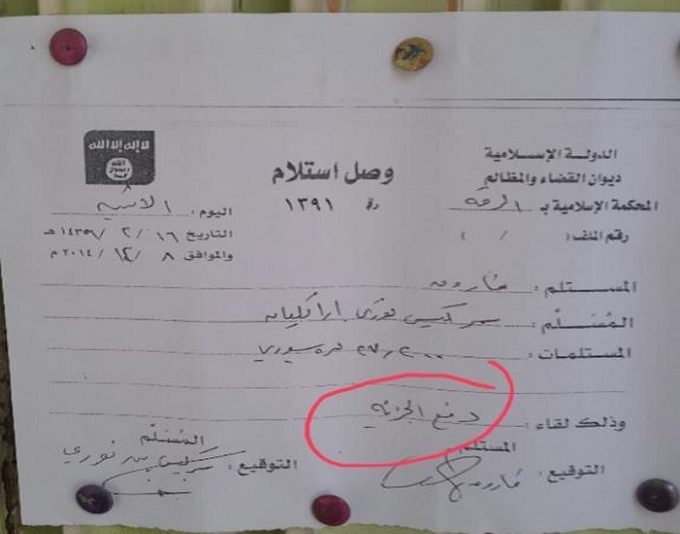 لا إله إلا الله
الله
رسول
محمد
الدولة الإسلامية
ديوان القضاء والمظالم
المحكمة الإسلامية بـ الرقة
رقم الملف: / /
وصل استلام
رقم ١٣٩١
اليوم: الاثنين
التاريخ ١٦ / ٢ / ١٤٣٦ هـ
والموافق ٨ / ١٢ / ٢٠١٤ م
المستلم: فاروق
المُسَلّم: سركيس نوري اراكليان
المستلمات: ليرة سوري
وذلك لقاء: دفع الجزية
المستلم
التوقيع: فاروق
المُسَلّم
التوقيع: سركيس نوري